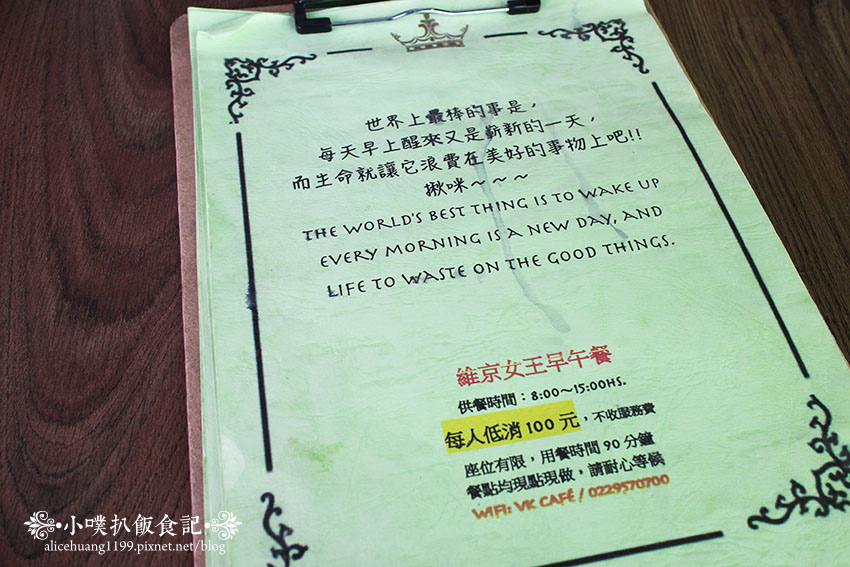 世界上最棒的事是，
每天早上醒來又是嶄新的一天，
而生命就讓它浪費在美好的事物上吧!!
揪咪～～～
THE WORLD'S BEST THING IS TO WAKE UP
EVERY MORNING IS A NEW DAY, AND
LIFE TO WASTE ON THE GOOD THINGS.
維京女王早午餐
供餐時間：8:00～15:00HS.
每人低消 100 元，不收服務費
座位有限，用餐時間 90 分鐘
餐點均現點現做，請耐心等候
WIFI: VK CAFÉ / 0229570700
小噗扒飯食記
alicehuang1199.pixnet.net/blog